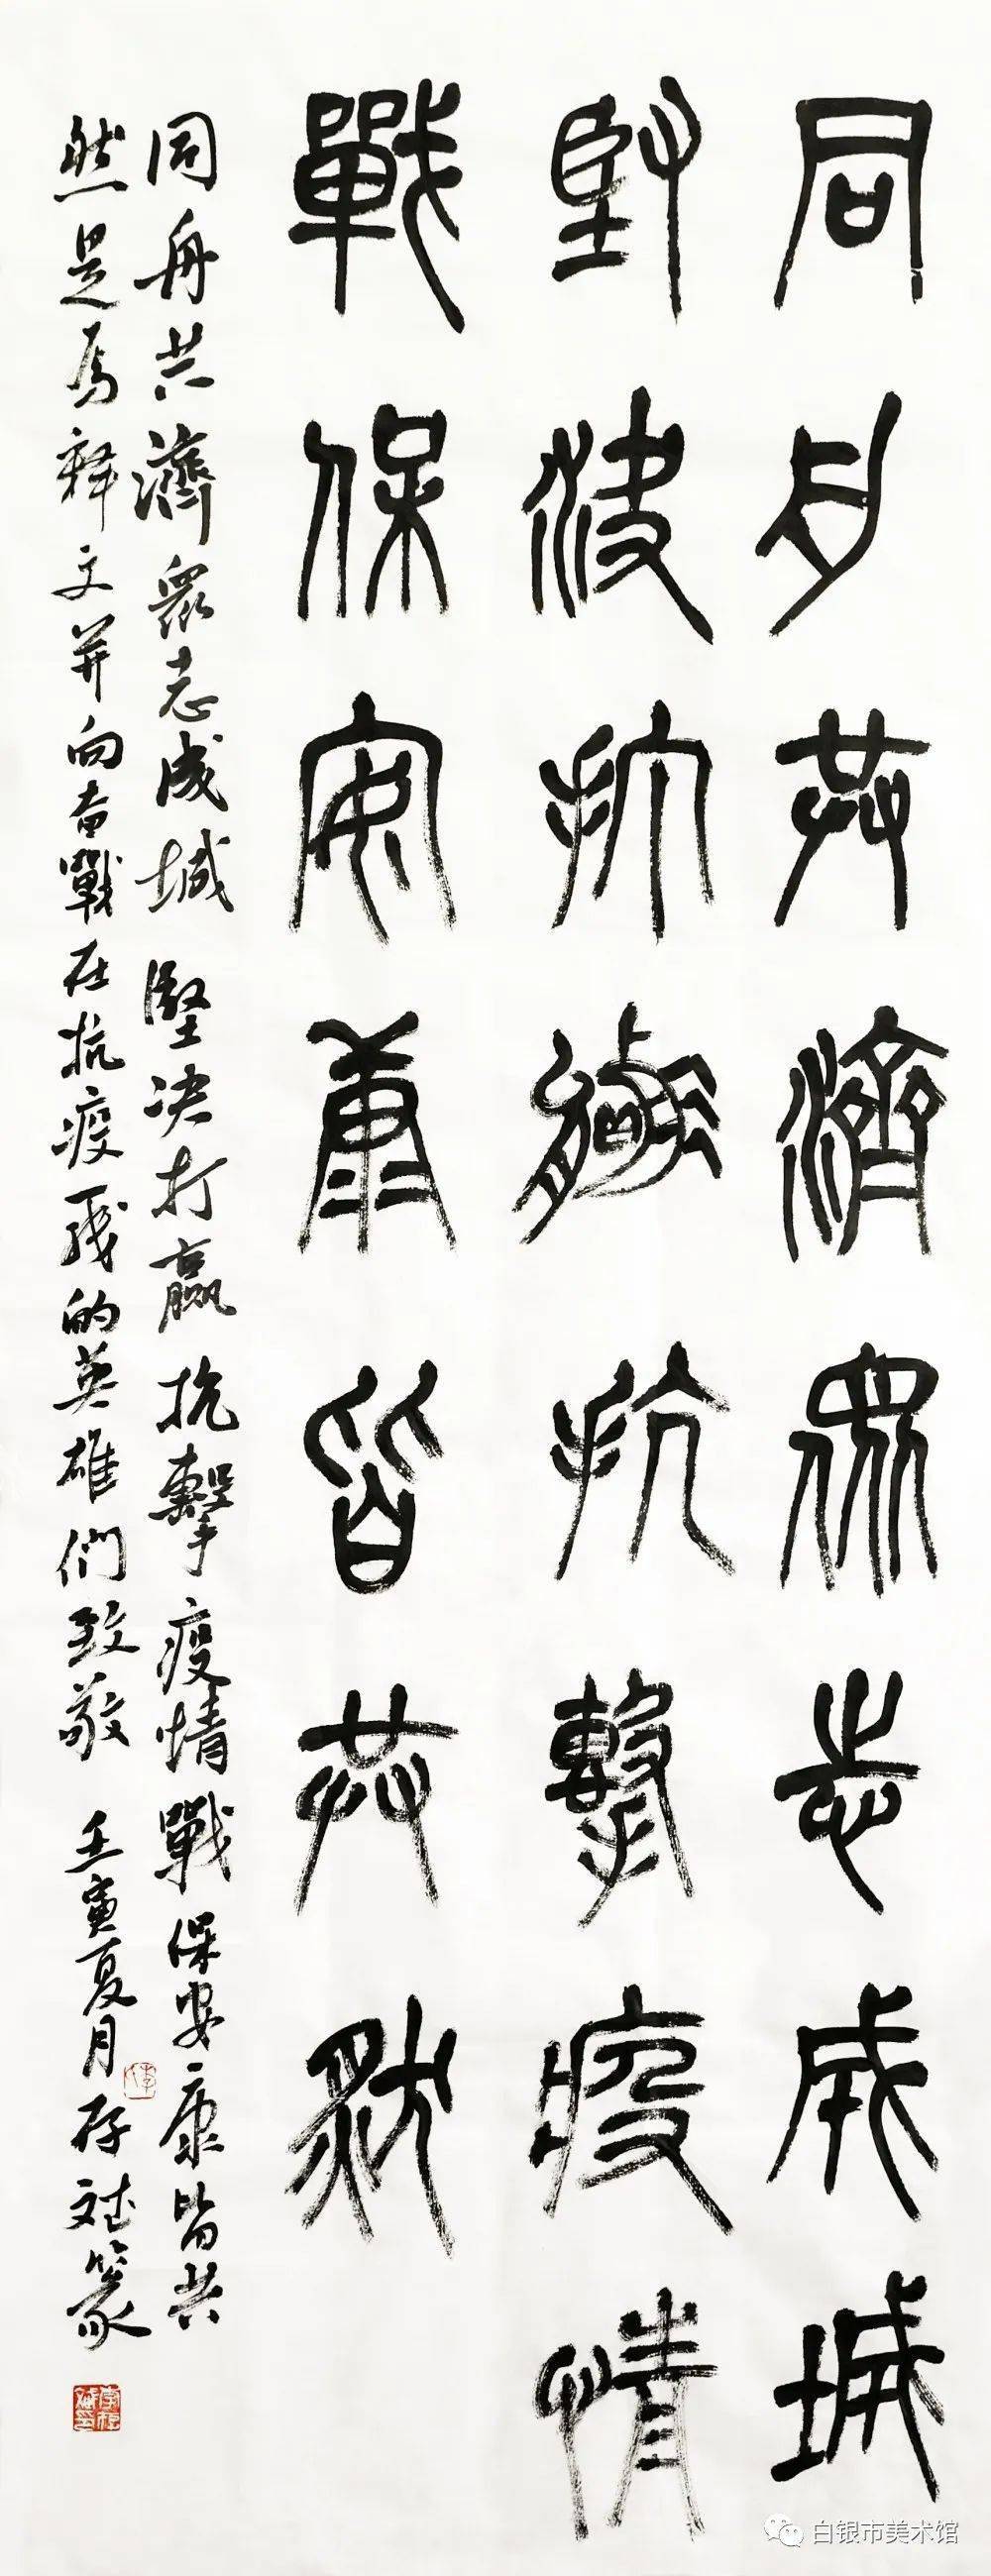 同舟共濟眾志成城
堅決打贏抗擊疫情
戰保安康皆共然
同舟共濟眾志成城堅决打贏抗擊疫情戰保安康皆共
然是為釋文并向奮戰在抗疫一綫的英雄們致敬 壬寅夏月存斌篆
白银市美术馆